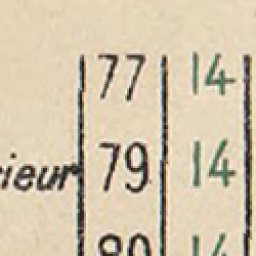 77 14
ieur 79 14
80 14